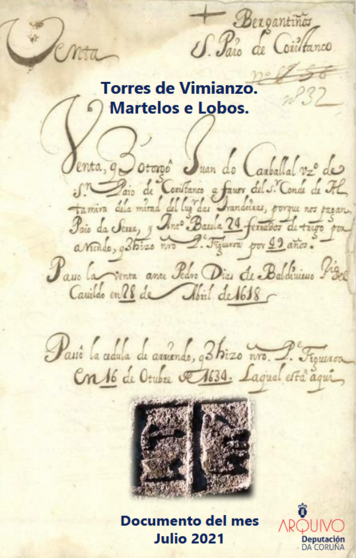 Bergantiños
Venta S. Paio de Coristanco
nº 832
Torres de Vimianzo.
Martelos e Lobos.
Venta, q otorgó Juan do Carballal vzº de
Sn Paio de Coristanco a favor del Sr Conde de Al
tamira dela mitad del lugr das Brandeiras, porque nos pagan
Paio da Serra, y Antº Baula 24 ferrados de trigo por
por 49 años.
Passó la venta ante Pedro Diaz de Baldivieso
Cavildo en 28 de Abril de 1618
Passó la cedula de arriendo, q hizo nro. Pe Figueroa
en 16 de Otubre de 1634. Laqual está aqui
Documento del mes
Julio 2021
ARQUIVO
Deputación
DA CORUÑA